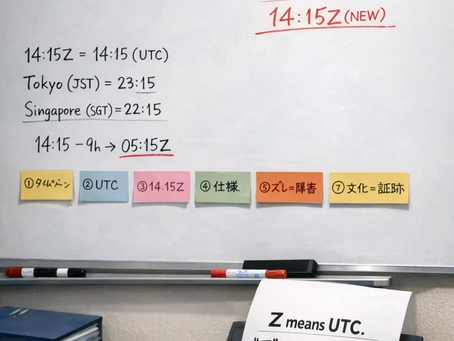 14:15Z (NEW)
14:15Z = 14:15 (UTC)
Tokyo (JST) = 23:15
Singapore (SGT) = 22:15
14:15 – 9h → 05:15Z
①タイムゾーン
②UTC
③14.15Z
④仕様
⑤ズレ=障害
⑦文化=証跡
Z means UTC.